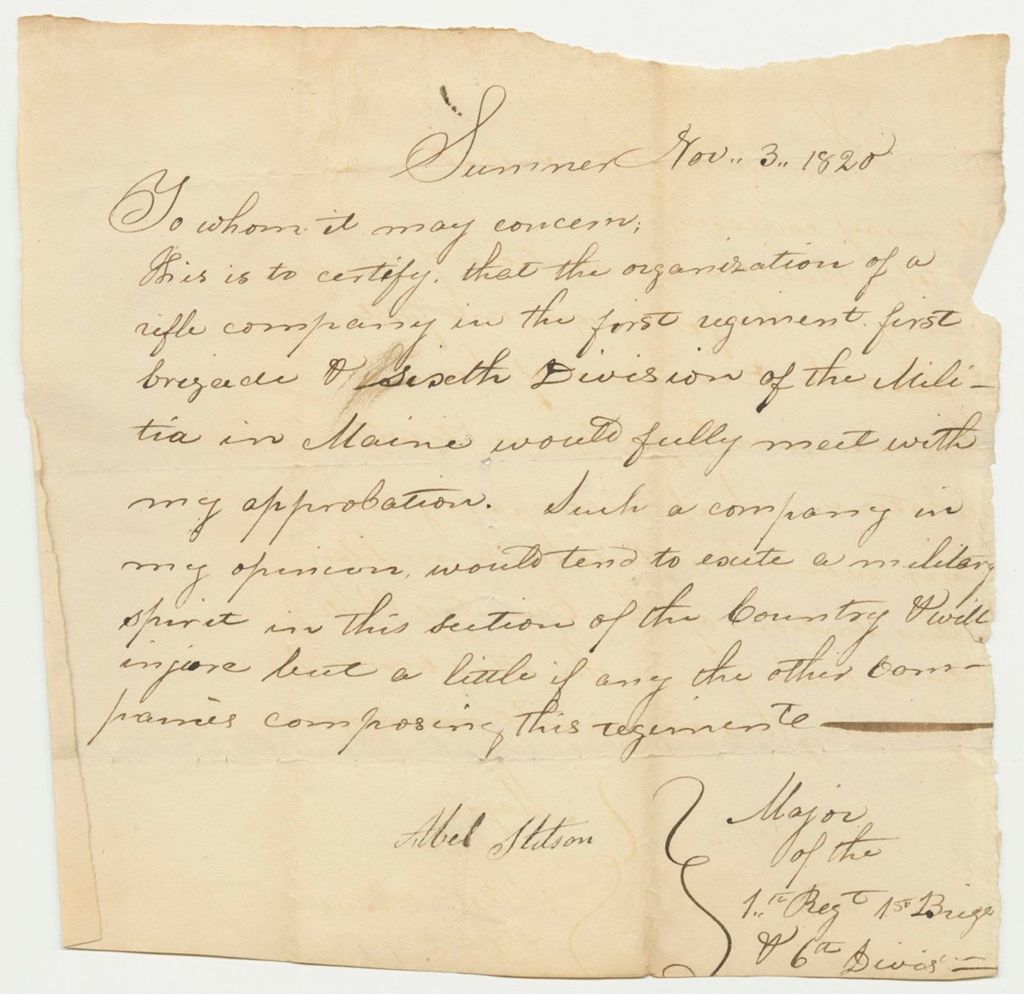 Sumner Nov.. 3.. 1820
To whom it may concern;
This is to certify. that the organization of a
rifle company in the first regiment. first
brigade & sixth Division of the Mili-
tia in Maine would fully meet with
my approbation. Such a company in
my opinion, would tend to exite a military
spirit in this section of the Country & will
injure but a little if any the other Com-
panies composing this regiment
Abel Stetson
Major
of the
1st Regt 1st Brige
& 6th Divis-